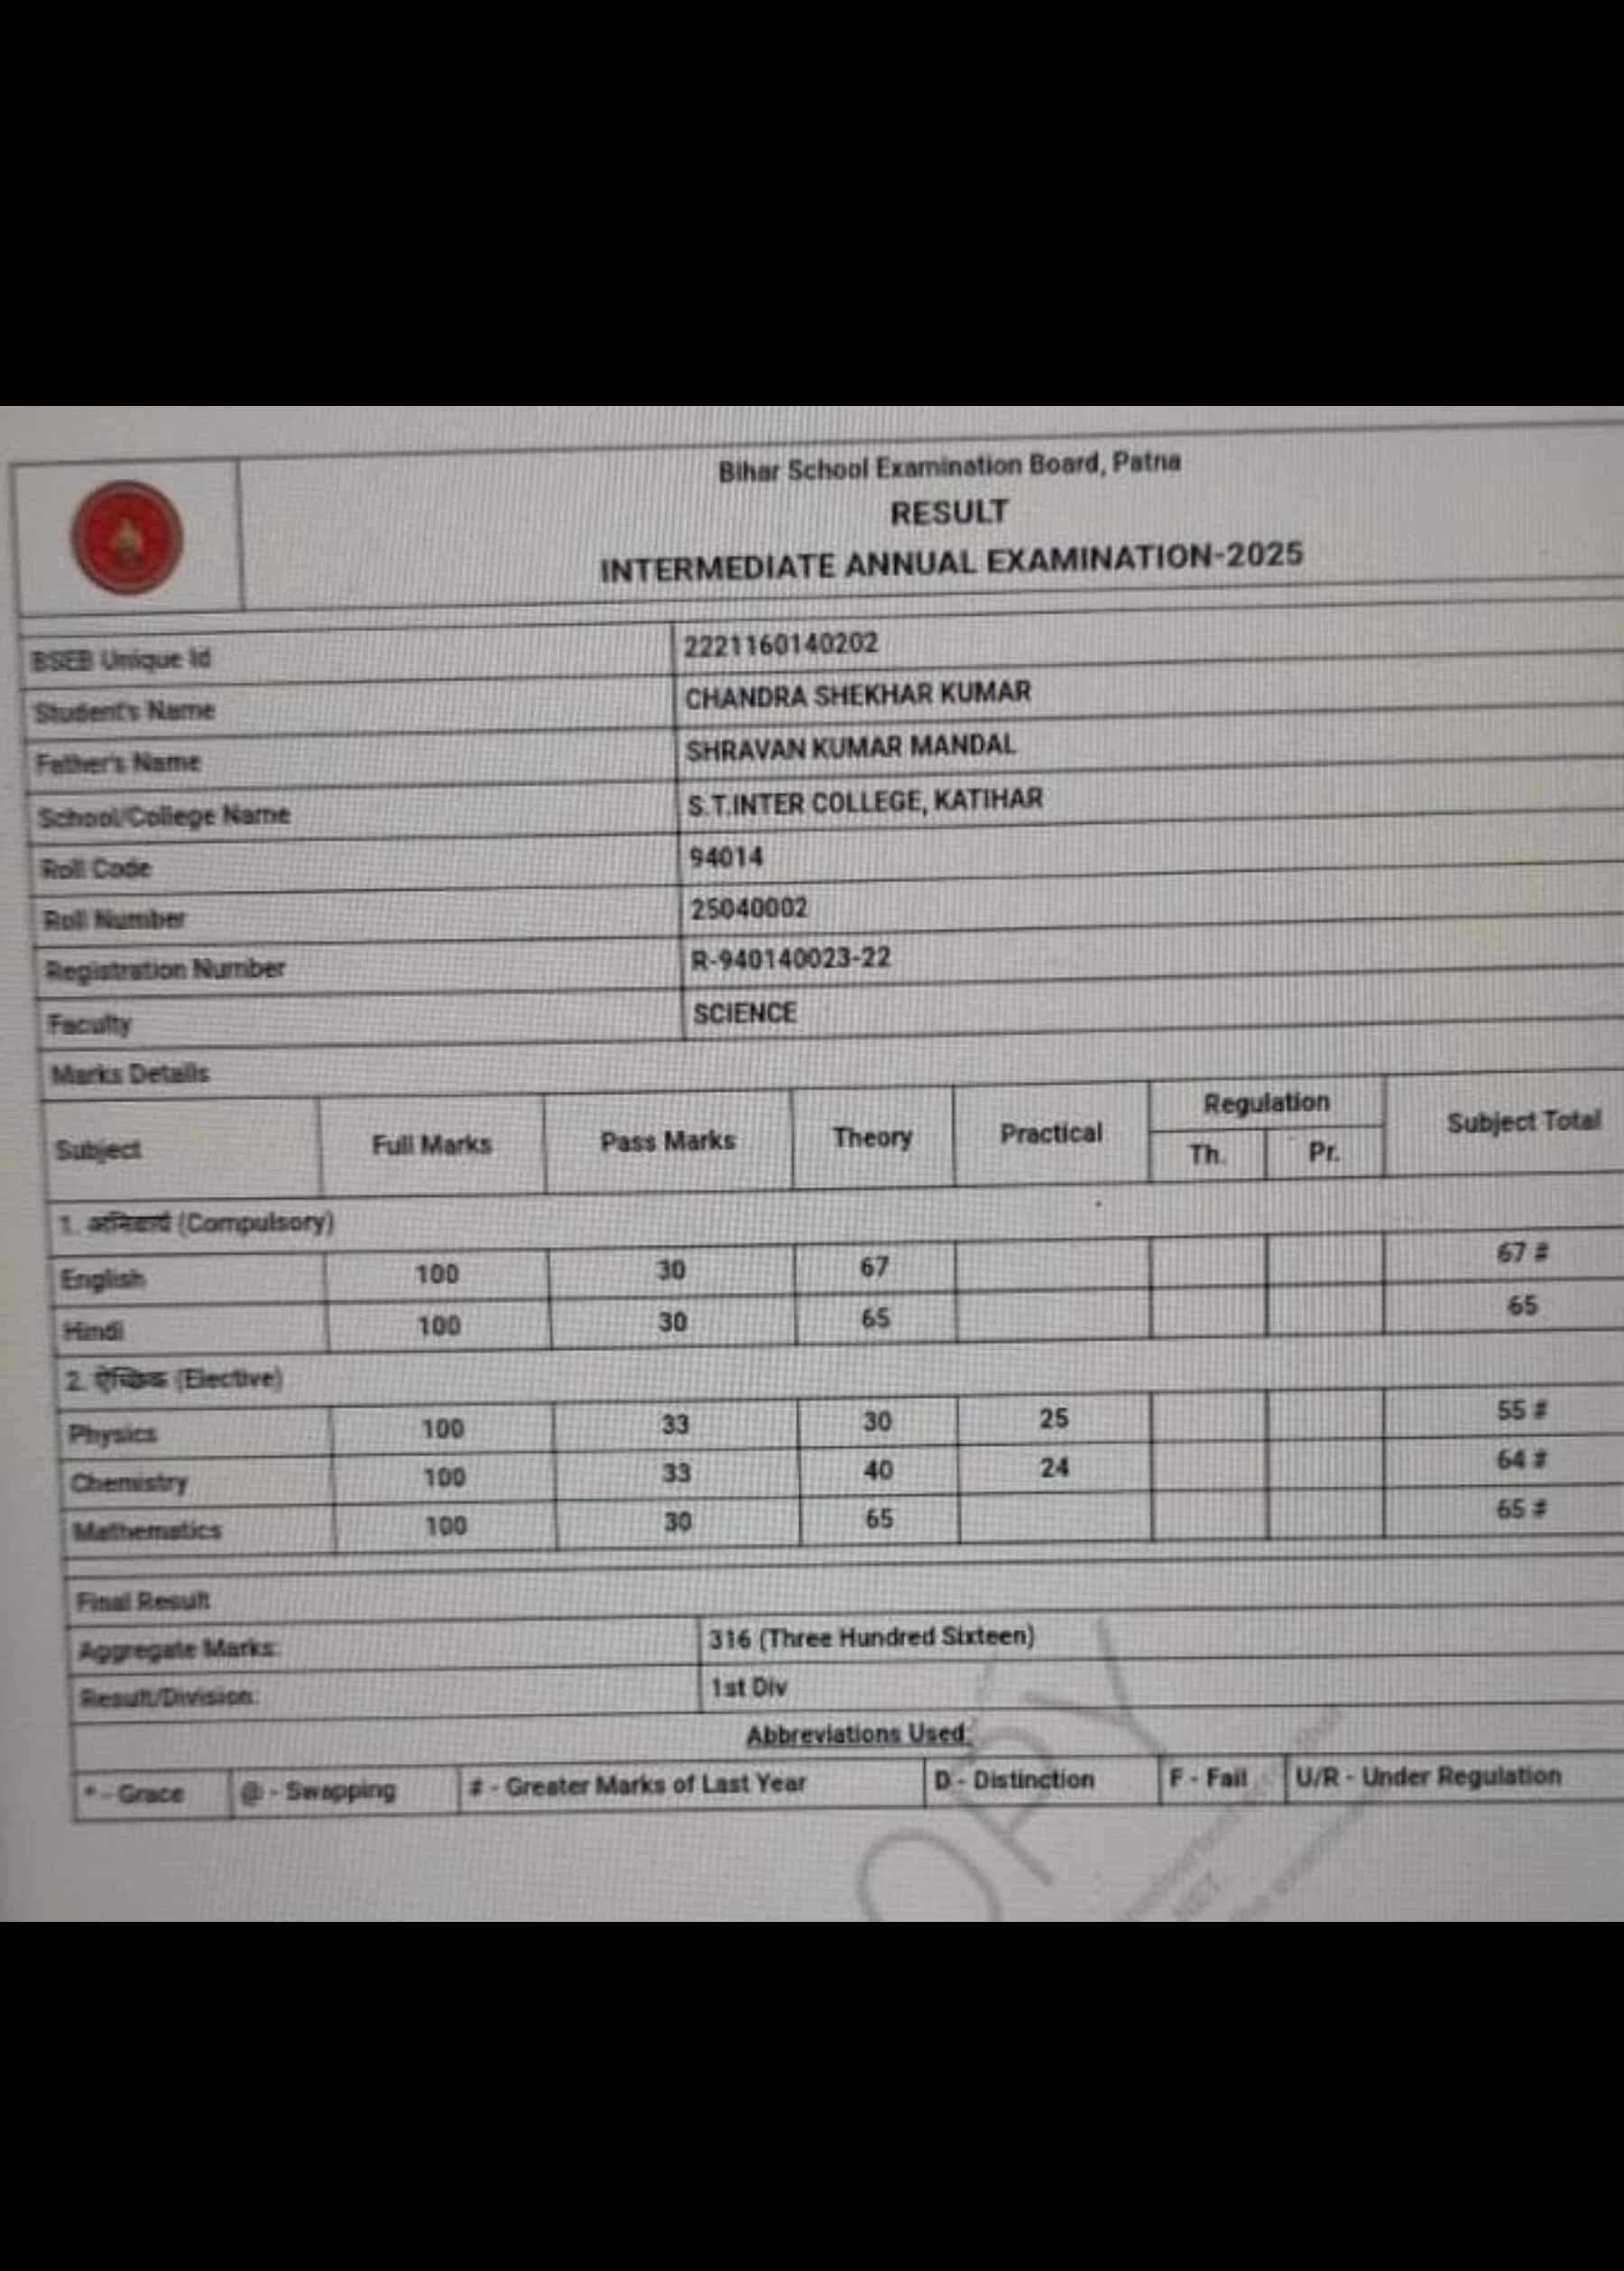 Bihar School Examination Board, Patna
RESULT
INTERMEDIATE ANNUAL EXAMINATION-2025
BSEB Unique Id 2221160140202
Student's Name CHANDRA SHEKHAR KUMAR
Father's Name SHRAVAN KUMAR MANDAL
School/College Name S.T.INTER COLLEGE, KATIHAR
Roll Code 94014
Roll Number 25040002
Registration Number R-940140023-22
Faculty SCIENCE
Marks Details
Subject Full Marks Pass Marks Theory Practical Regulation Subject Total
Th. Pr.
1. अनिवार्य (Compulsory)
English 100 30 67 67 #
Hindi 100 30 65 65
2. ऐच्छिक (Elective)
Physics 100 33 30 25 55 #
Chemistry 100 33 40 24 64 #
Mathematics 100 30 65 65 #
Final Result
Aggregate Marks: 316 (Three Hundred Sixteen)
Result/Division: 1st Div
Abbreviations Used:
* - Grace @ - Swapping # - Greater Marks of Last Year D - Distinction F - Fail U/R - Under Regulation
OPY
NET